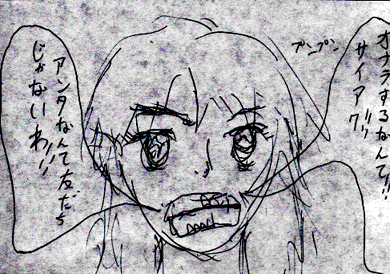 オナラするなんて!!
サイアク!!!
プンプン
アンタなんて友だち
じゃないわ!!